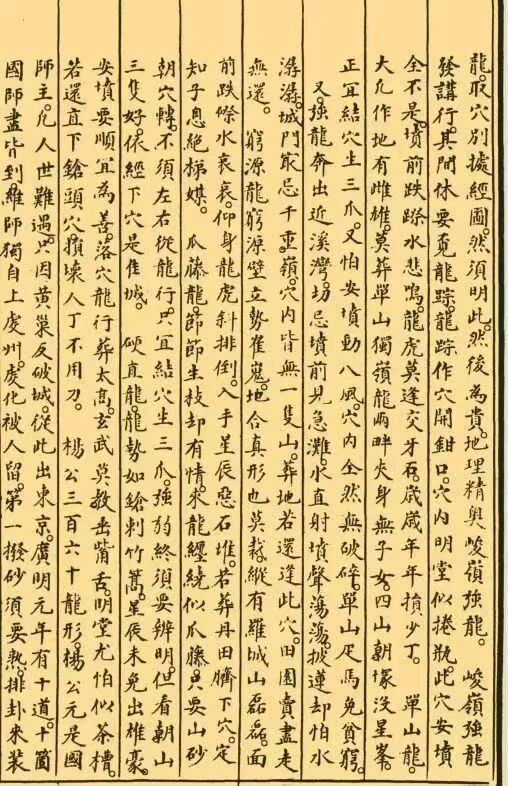 龍。取穴別據經圖。然須明此。然後為貴。地理精奧峻嶺強龍。　峻嶺強龍
發講行。其間休要覓龍踪。龍踪作穴開鉗口。穴內明堂似捲瓶。此穴安墳
全不是。墳前跌蹘水悲鳴。龍虎莫逢交牙石。歲歲年年損少丁。　單山龍。
大凡作地有雌雄。莫葬單山獨嶺龍。兩畔夾身無子女。四山朝塚沒星峯。
正宜結穴生三爪。又怕安墳動八風。穴內全然無破碎。單山疋馬免貧窮。
又。強龍奔出近溪灣。切忌墳前見急灘。水直射墳聲蕩蕩。挨蓮却怕水
潺潺。城門最忌千重嶺。穴內皆無一隻山。葬地若還逢此穴。田園賣盡走
無還。　窮源龍。窮源壁立勢崔嵬。地合真形也莫裁。縱有羅城山磊磊。面
前跌蹘水哀哀。仰身龍虎斜排倒。入手星辰惡石堆。若葬丹田臍下穴。定
知子息絕梯媒。　瓜藤龍。節節生枝却有情。來龍纏繞似瓜藤。只要山砂
朝穴轉。不須左右從龍行。只宜結穴生三爪。強弱終須要辨明。但看朝山
三隻好。依經下穴是佳城。　硬直龍。龍勢如鎗刺竹蒿。星辰未免出雄豪。
安墳要順宜為善。落穴龍行葬太高。玄武莫教垂嘴舌。明堂尤怕似茶槽。
若還直下鎗頭穴。損壞人丁不用刀。　楊公三百六十龍形。楊公元是國
師主。凡人世難遇。只因黃巢反破城。從此出東京。廣明元年有十道。十箇
國師盡皆到。維師獨自上虔州。虔化被人留。第一撥砂須要熟。排卦來裝